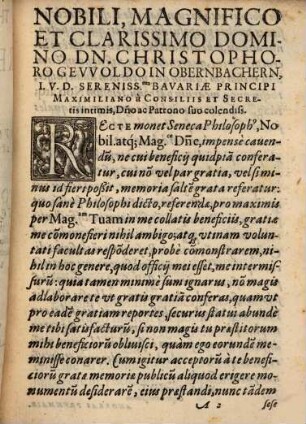 NOBILI, MAGNIFICO
ET CLARISSIMO DOMI
NO DN. CHRISTOPHO-
RO GEVVOLDO IN OBERNBACHERN,
I. V. D. SERENISS.mo BAVARIÆ PRINCIPI
MAXIMILIANO à CONSILIIS ET SECRE-
tis intimis, Dño ac Patrono suo colendiss.
RECTE monet Seneca Philosoph9, No
bil. atq; Mag.ce Dñe, impense cauen-
dũ, ne cui beneficij quidpiã confera-
tur, cui nõ vel par gratia, vel si mi-
nus id fieri possit, memoria saltẽ grata referatur:
quo sanè Philosophi dicto, referendæ, pro maximis
per Mag.am Tuam in me collatis beneficiis, gratiæ
me cõmonefieri nihil ambigo: atq; vtinam volun-
tati facultas respõderet, probè cõmonstrarem, ni-
hil in hoc genere, quod officij mei esset, me intermis-
surũ: quia tamen minimè sum ignarus, nõ magis te
adlaborare te vt gratũ gratiã conferas, quam vt
pro eadẽ gratiam reportes, securius statui abundè
me tibi satisfacturũ, si non magis tu præstitorum
mihi beneficiorũ obliuisci, quàm ego eorundẽ me-
minisse conarer. Cum igitur acceptorũ à te benefi-
ciorũ gratæ memoriæ publicũ aliquod erigere mo-
numentũ desiderarẽ, eius præstandi, nunc tãdem
A 2 sese